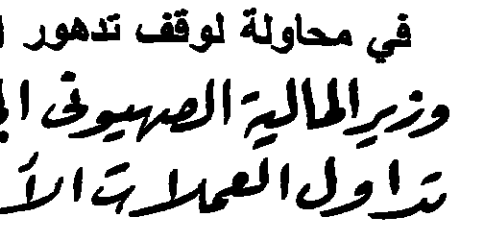 في محاولة لوقف تدهور
وزير المالية الصهيوني
تداول العملات